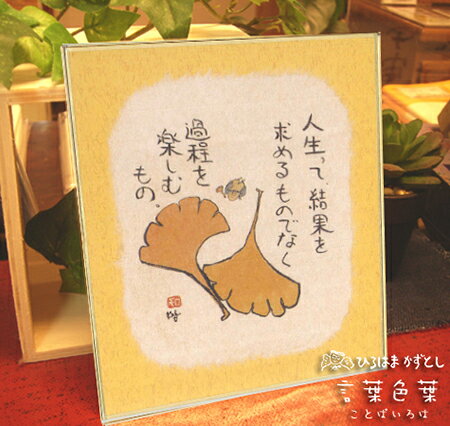 人生って結果を
求めるものでなく
過程を
楽しむ
もの。
和
ひろはまかずとし
言葉色葉
ことばいろは